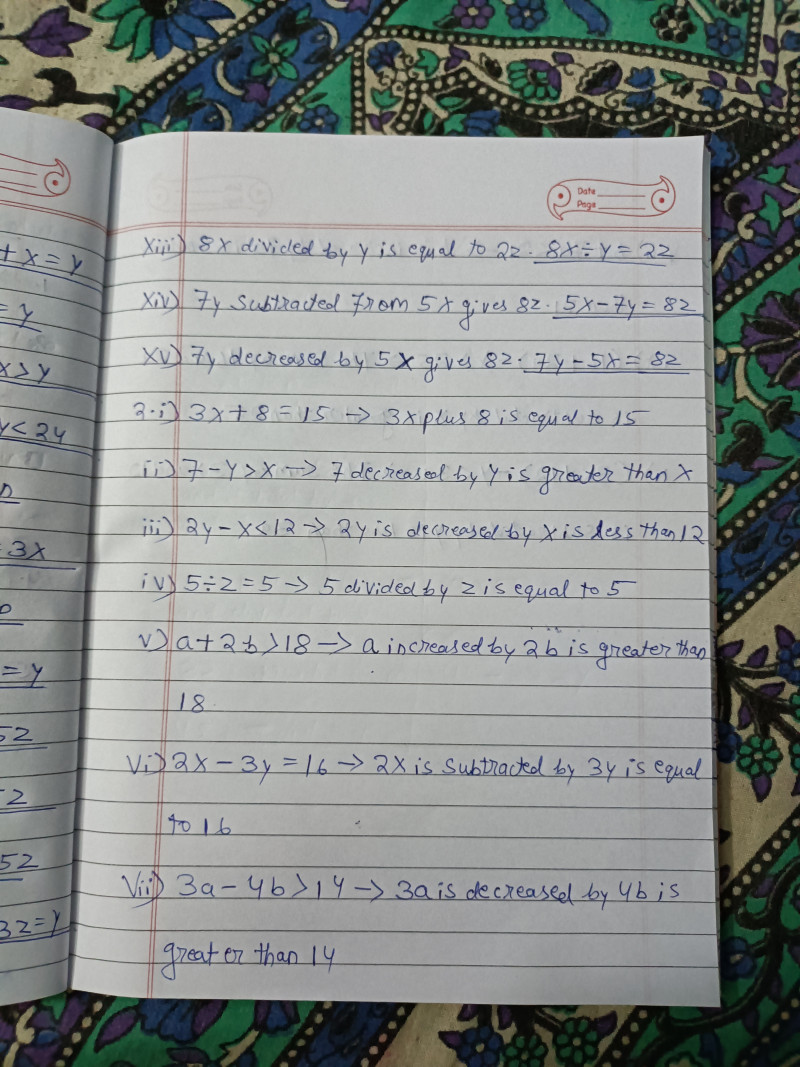 Date
Page
+ x = y
xiii) 8x divided by y is equal to 2z. 8x÷y = 2z
= y
xiv) 7y subtracted from 5x gives 8z. 5x-7y = 8z
x > y
xv) 7y decreased by 5x gives 8z. 7y-5x = 8z
y < 24
2.i) 3x + 8 = 15 → 3x plus 8 is equal to 15
ii) 7-y > x → 7 decreased by y is greater than x
iii) 2y-x < 12 → 2y is decreased by x is less than 12
= 3x
iv) 5÷z = 5 → 5 divided by z is equal to 5
v) a + 2b > 18 → a increased by 2b is greater than
= y
18
52
vi) 2x - 3y = 16 → 2x is subtracted by 3y is equal
2
to 16
52
vii) 3a - 4b > 14 → 3a is decreased by 4b is
3z = y
greater than 14